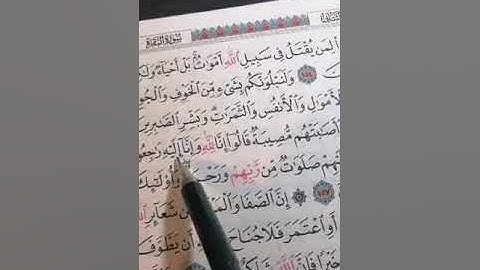 سورة البقرة
لمن يقتل فى سبيل الله أموٰتۢ بل أحياء ولٰكن
ولنبلونكم بشىء من الخوف والجو
الأموال والأنفس والثمرٰت وبشر الصٰبرين
أصٰبتهم مصيبة قالوا إنا لله وإنا إليه رٰجعو
هم صلوٰت من ربهم ورح وأولٰئك
۞ إن الصفا والم من شعائر الل
أو اعتمر فلا جناح أن يطوف
خيرا فإن الله